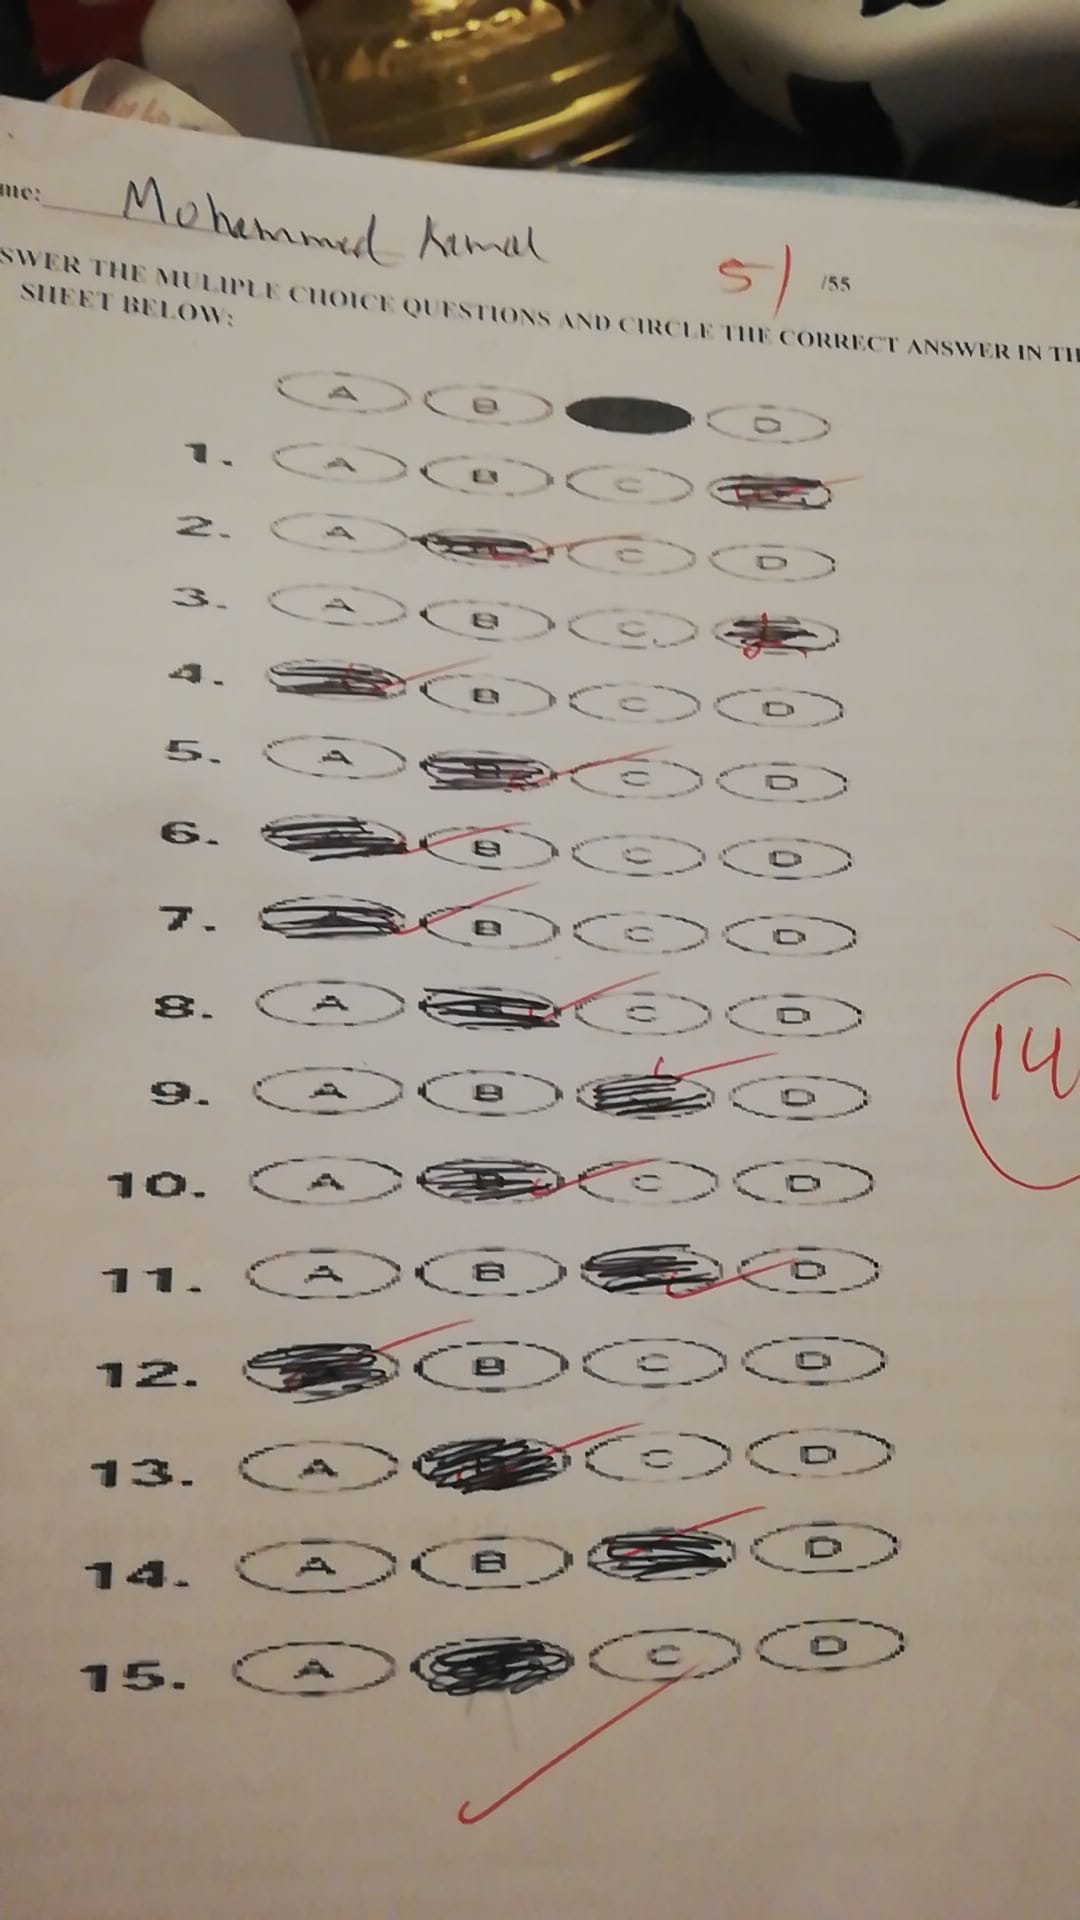 me: Mohammed Kamal
51 /55
SWER THE MULIPLE CHOICE QUESTIONS AND CIRCLE THE CORRECT ANSWER IN TH
SHEET BELOW:
A B D
1. A B C
2. A C D
3. A B C
4. B C D
5. A B C D
6. B C D
7. B C D
8. A C D
9. A B D
10. A B C D
11. A B D
12. B C D
13. A C D
14. A B D
15. A C D
14